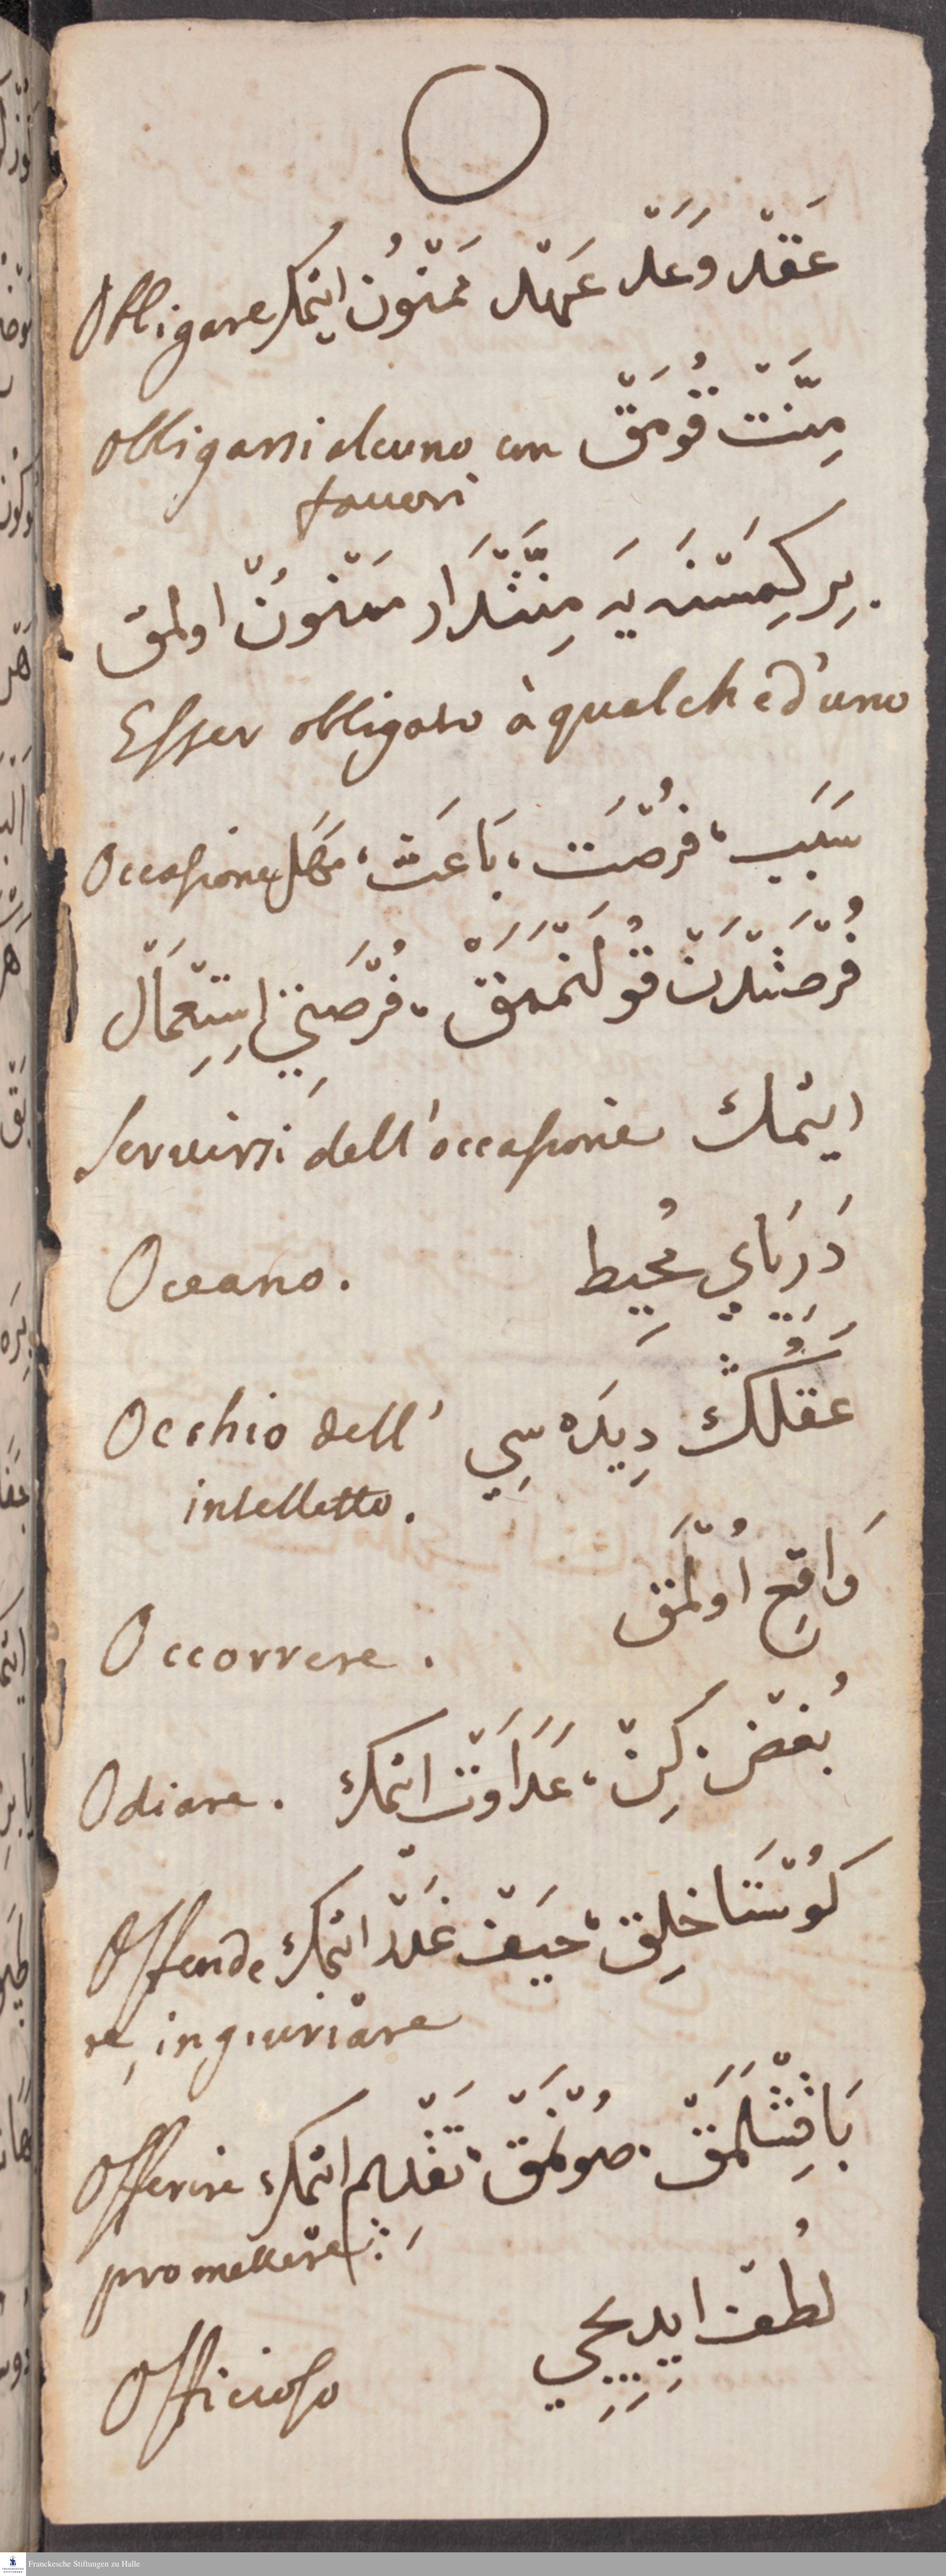 O
Obligare عَقْد وَعَدْ عَهْد مَمْنُونْ ايتمك
obligarsi alcuno con مِنَّتْ قُومَقْ
fauori
بِر كِمَسْنَه يَه مِنَّتْدَار مَمْنُونْ اولمق
Esser obligato à qualched'uno
Occasione سَبَب، فُرْصَت، بَاعَث، مَحَل
فُرْصَتْدَنْ قُولَنْمَقْ، فُرْصَتِي اِسْتِعْمَالْ
Seruirsi dell'occasione ايتمك
Oceano. دَرِيَايِ مُحِيط
Occhio dell' عَقْلُكْ دِيدَه سِي
intelletto.
Occorrere. وَاقِع اُولْمَق
Odiare. بُغْض. كِينْ، عَدَاوَتْ اتمك
Offende كُوسْتَاخلِق، حَيفْ غَدْر اتمك
re, ingiuriare
Offerire بَاغِشْلَمَقْ. صُونْمَقْ. تَقْدِيم اتمك
promettere
Officioso لُطْف ايديجي
Franckesche Stiftungen zu Halle